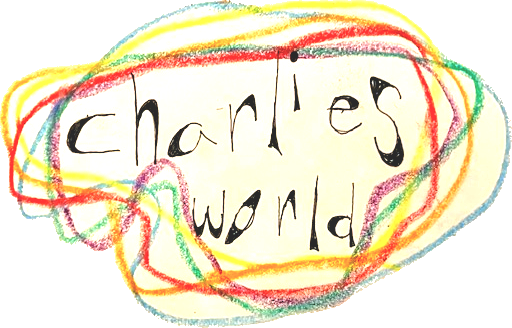 charlies
world